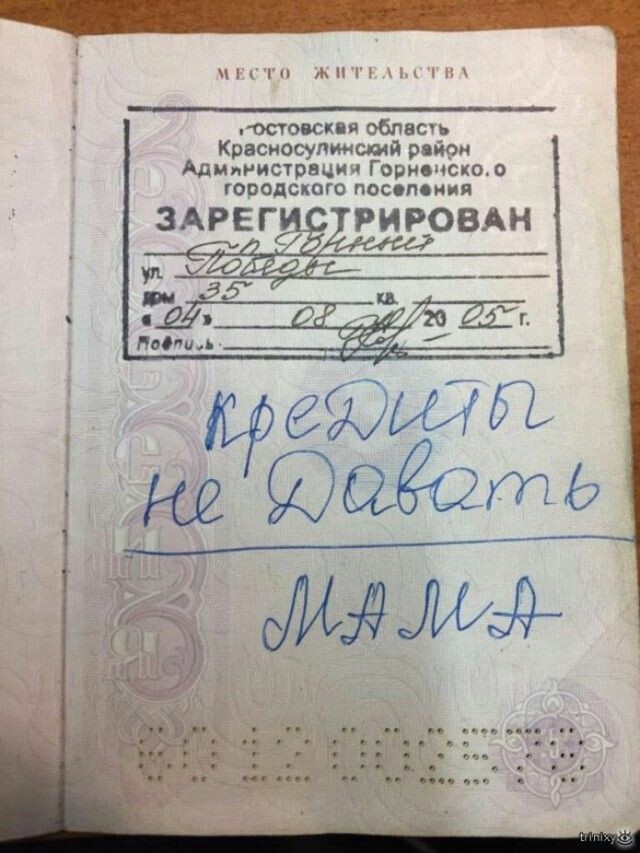 МЕСТО ЖИТЕЛЬСТВА
остовская область
Красносулинский район
Администрация Горненско.о
городского поселения
ЗАРЕГИСТРИРОВАН
п. Горный
ул. Победы
дом 35 кв.
« 04 » 08 20 05 г.
Подпись
кредиты
не давать
МАМА
trinixy